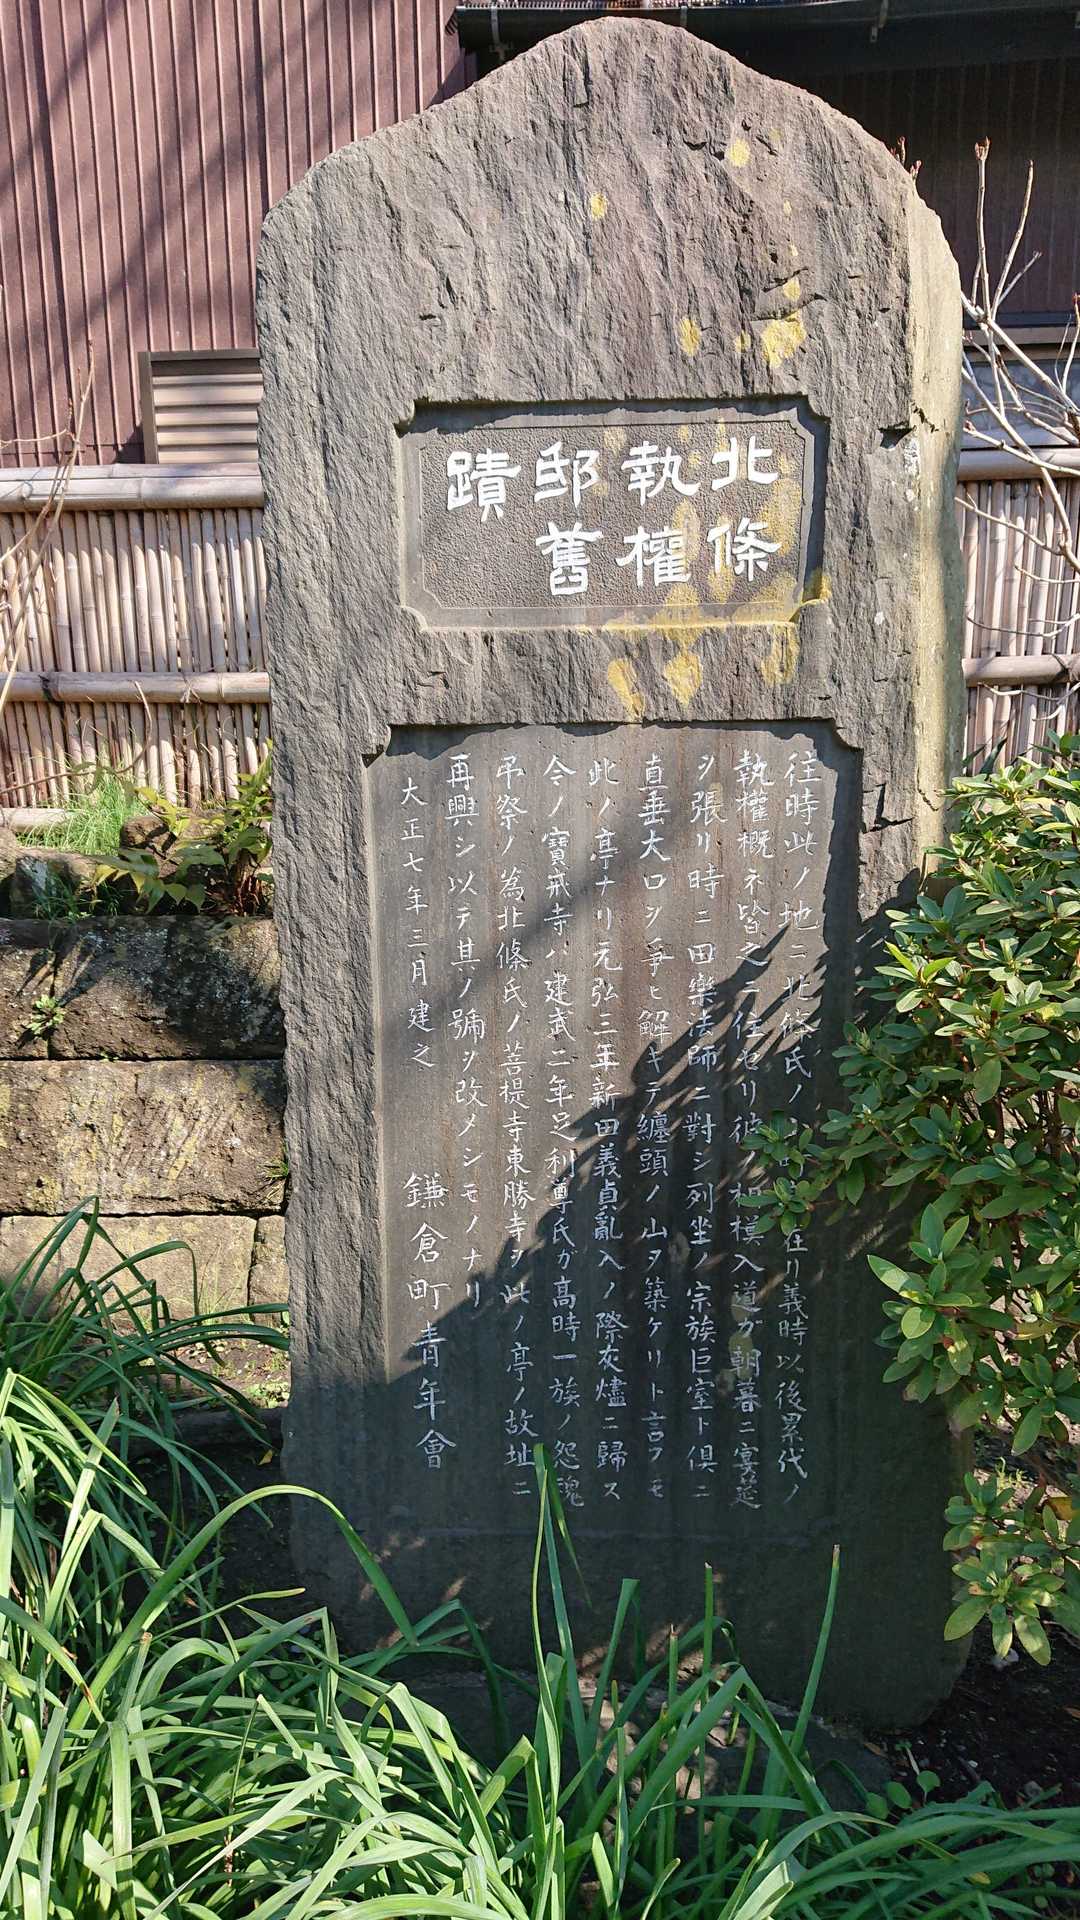 北條
執權
邸舊
蹟
往時此ノ地ニ北條氏ノ小町亭在リ義時以後累代ノ
執權概ネ皆之ニ住セリ彼ノ相模入道ガ朝暮ニ宴莚
ヲ張リ時ニ田樂法師ニ對シ列坐ノ宗族巨室ト倶ニ
直垂大口ヲ爭ヒ解キテ纏頭ノ山ヲ築ケリト言フモ
此ノ亭ナリ元弘三年新田義貞亂入ノ際灰燼ニ歸ス
今ノ寶戒寺ハ建武二年足利尊氏ガ高時一族ノ怨魂
吊祭ノ為北條氏ノ菩提寺東勝寺ヲ此ノ亭ノ故址ニ
再興シ以テ其ノ號ヲ改メシモノナリ
大正七年三月建之 鎌倉町青年會